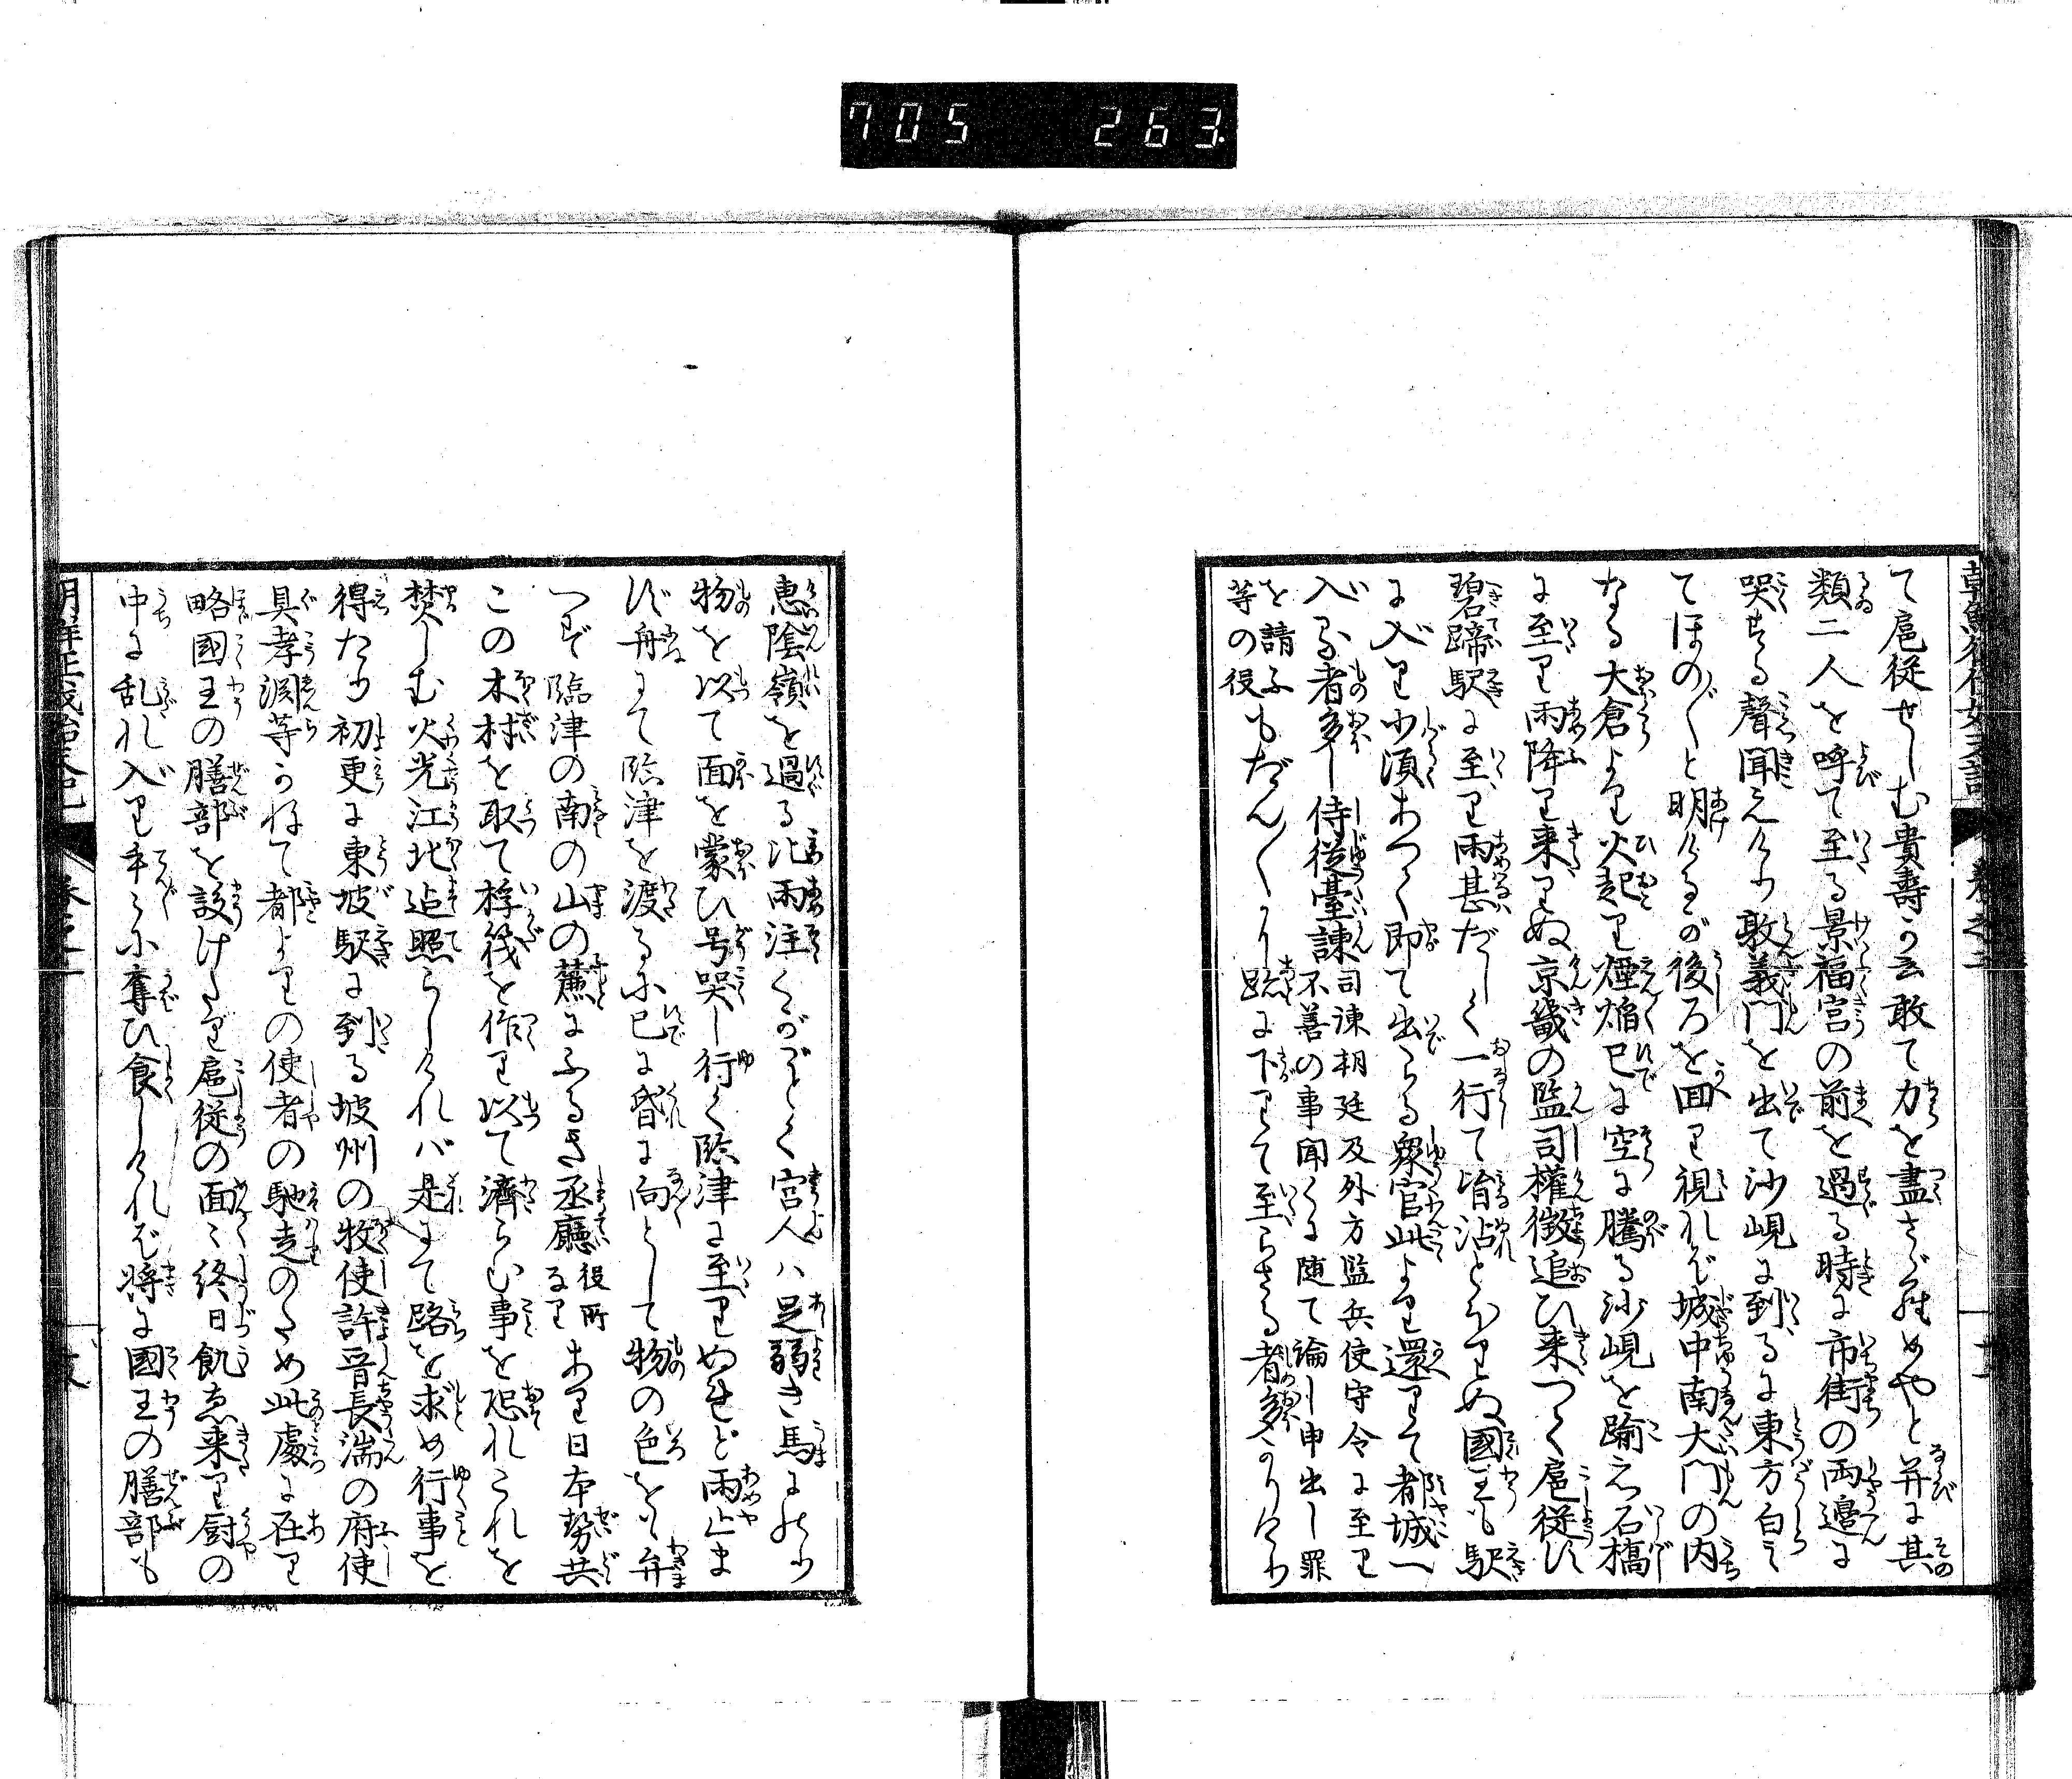 705 263.
て扈従せしむ貴壽が云敢て力を盡さゞらめやと并に其
類二人を呼て至る景福宮の前を過る時に市街の両邉に
哭する聲聞えけり敦義門を出て沙峴に到るに東方白み
てほの〴〵と明けるが後ろを回り視れば城中南大門の内
なる大倉より火起り煙焔已に空に騰る沙峴を踰え石橋
に至り雨降り来りぬ京畿の監司權徴追ひ来つて扈従す
碧蹄駅に至り雨甚だしく一行て皆沾とほりぬ國王も駅
に入り少須あつて即て出らる衆官此より還りて都城へ
入る者多し侍従臺諌
司諌朝廷及外方監兵使守令に至り
不善の事聞くに随て論じ申出し罪
を請ふ
等の役
もだん〳〵かり跡に下りて至らざる者多かりけり
恵陰嶺を過る比雨注くがごとく宮人ハ足弱き馬にのり
物を以て面を蒙ひ号哭し行く臨津に至りぬれど雨止ま
ず舟にて臨津を渡るに已に昏に向として物の色をも弁
つず臨津の南の山の麓にふるき丞廳
役所
なり
あり日本勢共
この木材を取て桴筏を作り以て濟らむ事を恐れこれを
焚しむ火光江北迠照らしけれバ是にて路を求め行事を
得たり初更に東坡駅に到る坡州の牧使許晋長湍の府使
具孝渕等かねて都よりの使者の馳走のため此處に在り
略國王の膳部を設けたり扈従の面々終日飢ゑ来り厨の
中に乱れ入り手々に奪ひ食しければ将に國王の膳部も